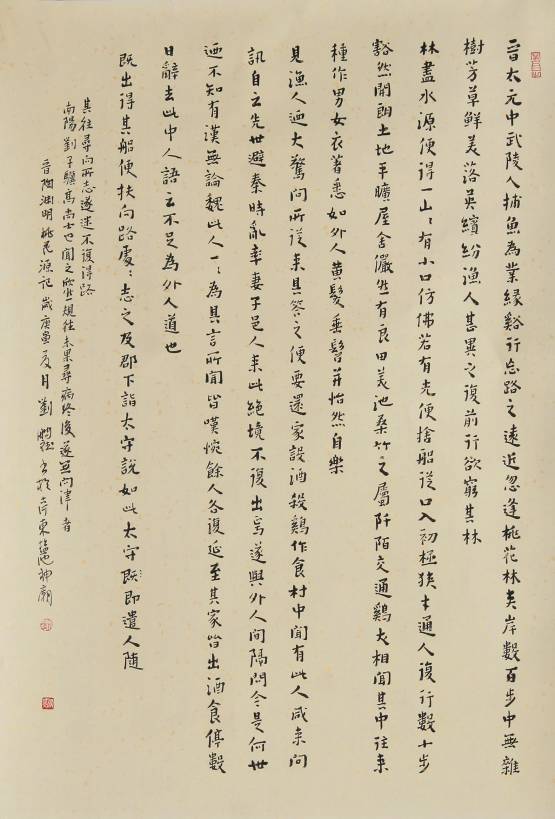 晉太元中武陵人捕魚為業緣谿行忘路之遠近忽逢桃花林夾岸數百步中無雜
樹芳草鮮美落英繽紛漁人甚異之復前行欲窮其林
林盡水源便得一山山有小口仿佛若有光便捨船從口入初極狹才通人復行數十步
豁然開朗土地平曠屋舍儼然有良田美池桑竹之屬阡陌交通鷄犬相聞其中往来
種作男女衣著悉如外人黄髮垂髫并怡然自樂
見漁人迺大驚問所從来具答之便要還家設酒殺鷄作食村中聞有此人咸来問
訊自云先世避秦時亂率妻子邑人来此絕境不復出焉遂與外人間隔問今是何世
迺不知有漢無論魏此人一一為具言所聞皆嘆惋餘人各復延至其家皆出酒食停數
日辭去此中人語云不足為外人道也
既出得其船便扶向路處處志之及郡下詣太守說如此太守既即遣人隨
其往尋向所志遂迷不復得路
南陽劉子驥高尚士也聞之欣然規往未果尋病終後遂無問津者
晉陶淵明桃花源記 歲庚寅夏月劉 書於 東 神廟